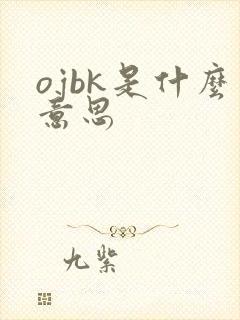 ojbk是什麼
意思
九紫